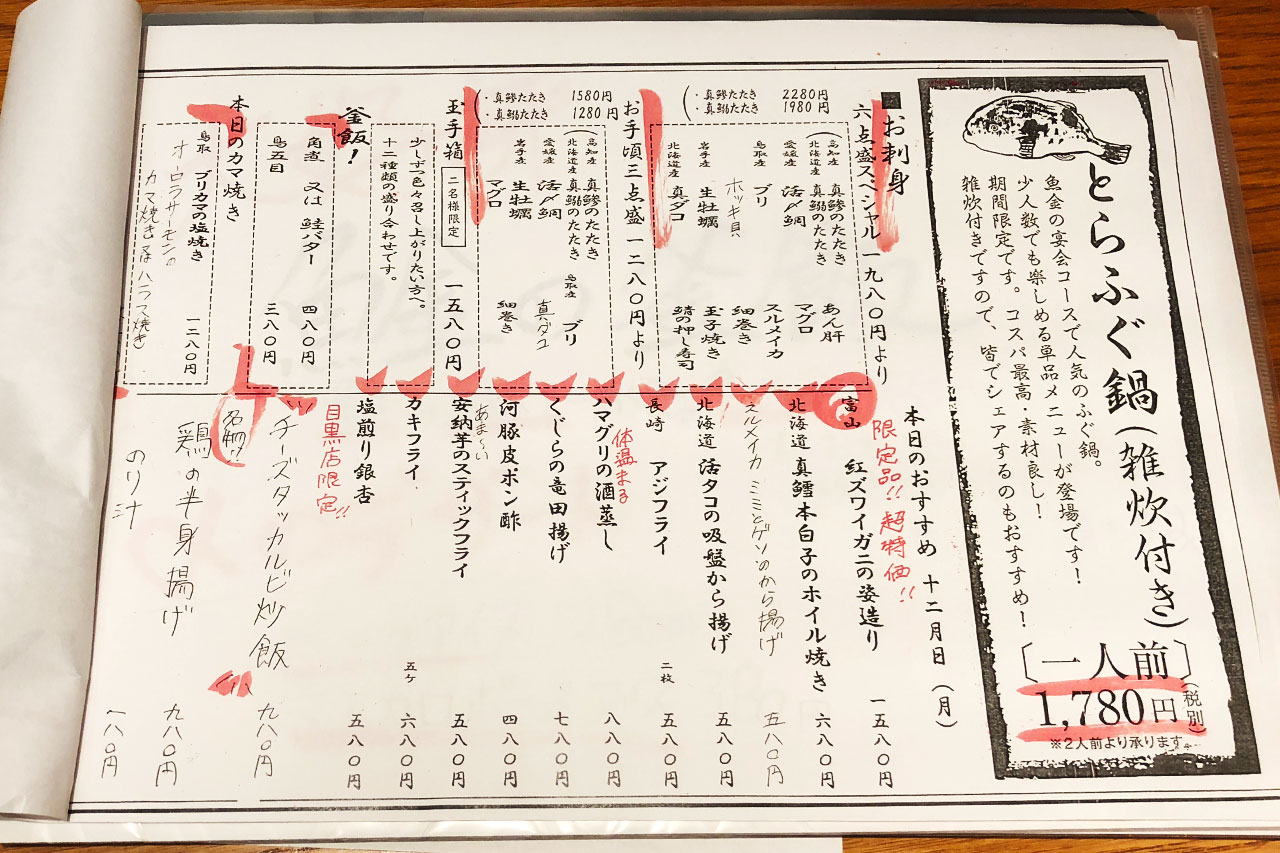 とらふぐ鍋(雑炊付き)
魚金の宴会コースで人気のふぐ鍋。
少人数でも楽しめる単品メニューが登場です!
期間限定です。コスパ最高・素材良し!
雑炊付きですので、皆でシェアするのもおすすめ!
〔一人前〕
1,780円(税別)
※2人前より承ります。
お刺身
六点盛スペシャル 一九八〇円より
・真鯵たたき 2280円
・真鰯たたき 1980円
高知産 真鯵のたたき
北海道産 真鰯のたたき
愛媛産 活〆鯛
鳥取産 ブリ
ホッキ貝
岩手産 生牡蠣
北海道産 真ダコ
あん肝
マグロ
スルメイカ
細巻き
玉子焼き
鯖の押し寿司
お手頃三点盛 一二八〇円より
・真鯵たたき 1580円
・真鰯たたき 1280円
高知産 真鯵のたたき
北海道産 真鰯のたたき
愛媛産 活〆鯛
岩手産 生牡蠣
マグロ
鳥取産 ブリ
真ダコ
細巻き
玉手箱 二名様限定 一五八〇円
少しずつ色々召し上がりたい方へ。
十二種類の盛り合わせです。
釜飯!
角煮 又は 鮭バター 四八〇円
鳥五目 三八〇円
本日のカマ焼き
鳥取 ブリカマの塩焼き 一二八〇円
オーロラサーモンの
カマ焼き 又は ハラス焼き)
本日のおすすめ 十二月日(月)
限定品!!超特価!!
富山 紅ズワイガニの姿造り 一五八〇円
北海道 真鱈本白子のホイル焼き 六八〇円
スルメイカ ミミとゲソのから揚げ 五八〇円
北海道 活タコの吸盤から揚げ 五八〇円
長崎 アジフライ 二枚 五八〇円
体温まる
ハマグリの酒蒸し 八八〇円
くじらの竜田揚げ 七八〇円
河豚皮ポン酢 四八〇円
あま〜い
安納芋のスティックフライ 五八〇円
カキフライ 五ケ 六八〇円
塩煎り銀杏 五八〇円
目黒店限定!!
チーズタッカルビ炒飯 九八〇円
名物!!
鶏の半身揚げ 九八〇円
のり汁 一八〇円